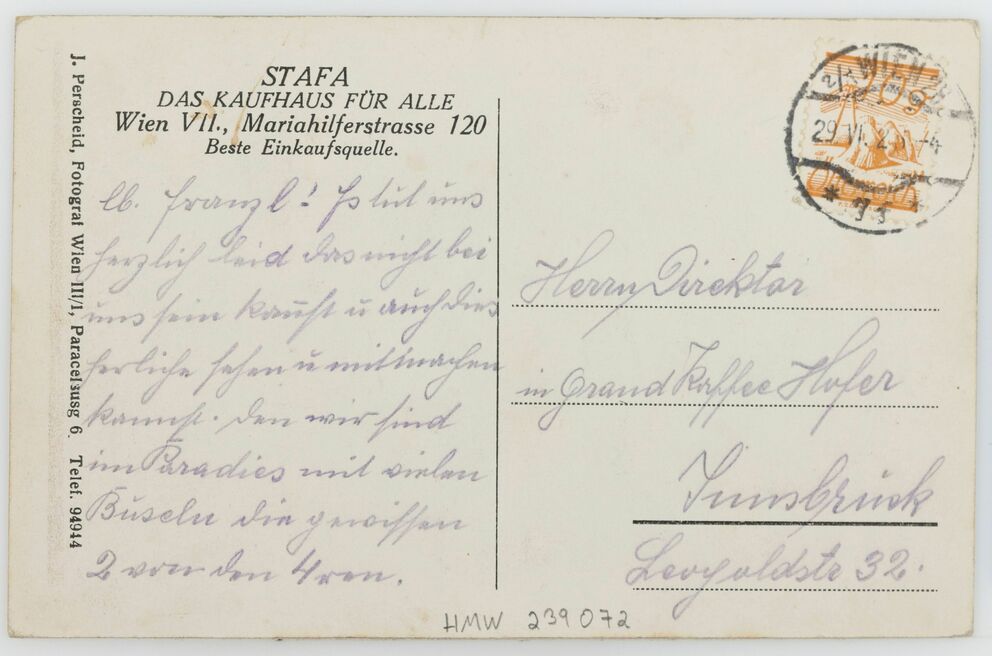 STAFA
DAS KAUFHAUS FÜR ALLE
Wien VII., Mariahilferstrasse 120
Beste Einkaufsquelle.
J. Perscheid, Fotograf Wien III/1, Paracelsusg 6. Telef. 94944
lb. Franzl! Es tut uns
herzlich leid das nicht bei
uns sein kannst u auch dies
herliche sehen u mittmachen
kannst. den wir sind
im Paradies mit vielen
Buseln die gewissen
2 von den 4ren.
WIEN
29.VI.2
Herrn Direktor
in Grand Kaffee Hofer
Innsbruck
Leopoldstr 32.
HMW 239072